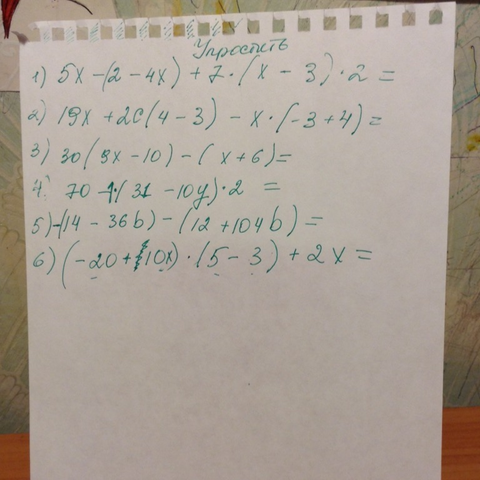 Упростить
1) 5x -(2 - 4x) + 7·(x - 3)·2 =
2) 19x + 20(4 - 3) - x·(-3 + 4) =
3) 30(9x - 10) - (x + 6) =
4) 70 - 1·(31 - 10y)·2 =
5) -(14 - 36b) - (12 + 104b) =
6) (-20 + 10x)·(5 - 3) + 2x =